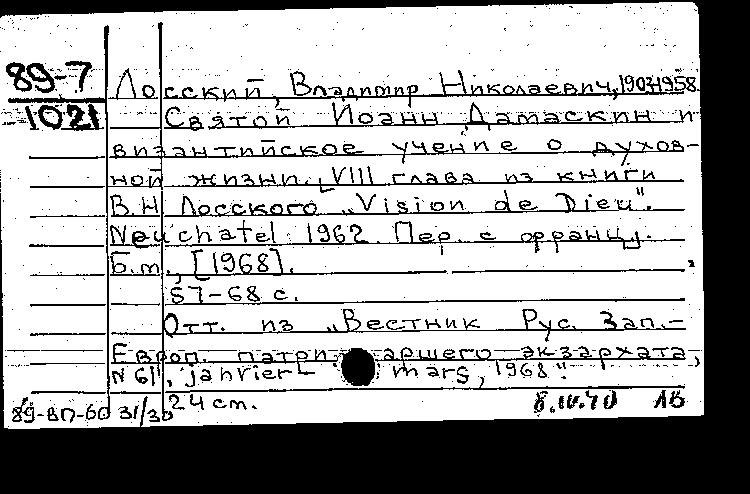 89-7
1021
Лосский, Владимир Николаевич, 1903-1958
Святой Иоанн Дамаскин и
византийское учение о духов-
ной жизни. [VIII глава из книги
В.Н Лосского „Vision de Dieu".
Neuchatel 1962. Пер. с францу].
Б.m., [1968].
57-68 с.
Отт. из „Вестник Рус. Зап.-
Европ. патриаршего экзархата,
N 61", janvier- mars, 1968".
24 cm.
89-ВП-60 31/30